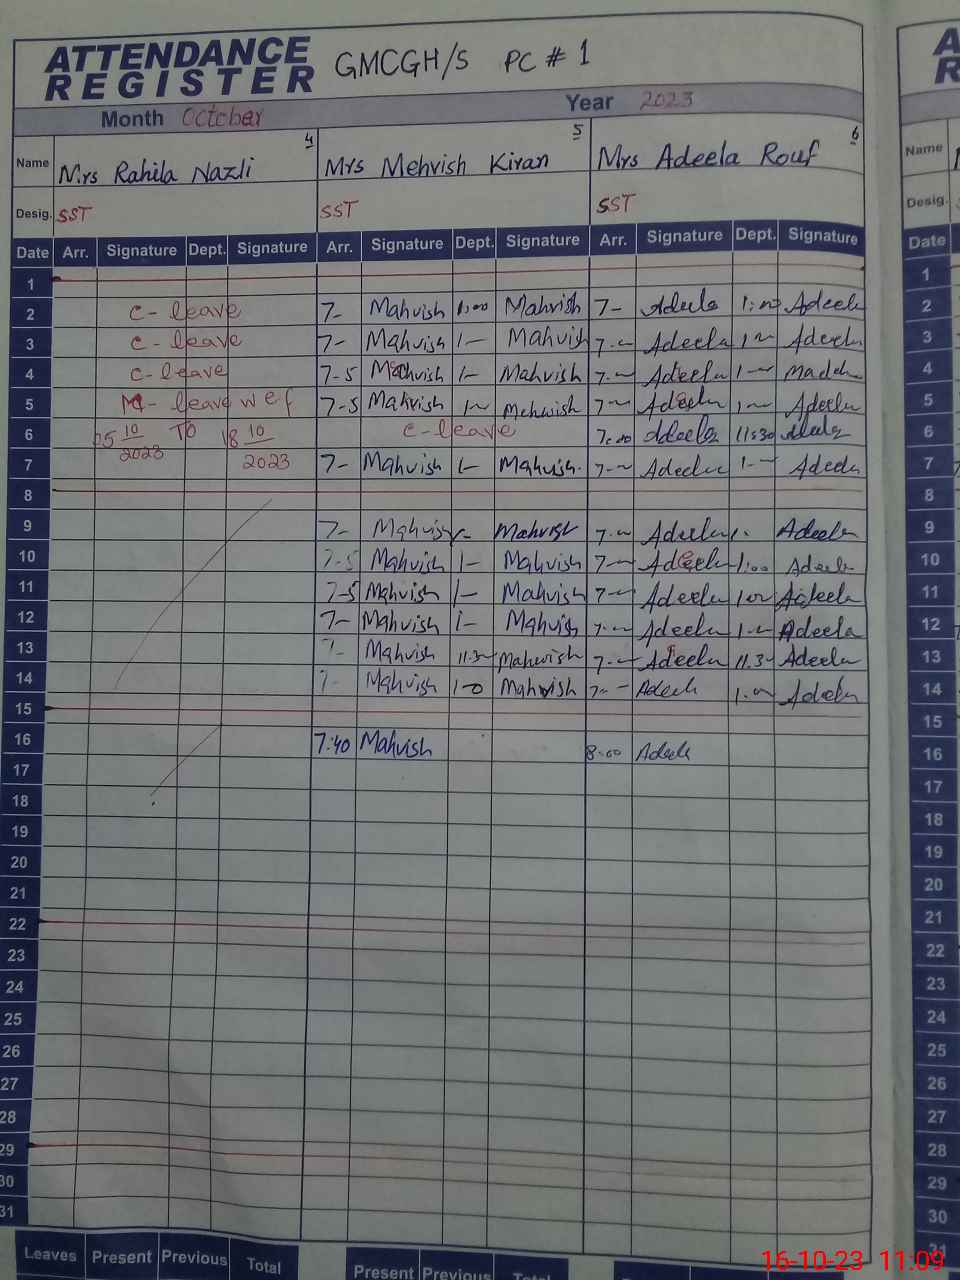 ATTENDANCE REGISTER GMCGH/S PC # 1
Month October Year 2023
4 5 6
Name Mrs Rahila Nazli Mrs Mehvish Kiran Mrs Adeela Rouf Name
Desig. SST SST SST Desig.
Date Arr. Signature Dept. Signature Arr. Signature Dept. Signature Arr. Signature Dept. Signature Date
1 1
2 C-leave 7- Mahvish 1:00 Mahvish 7- Adeela 1:00 Adeela 2
3 C-leave 7- Mahvish 1- Mahvish Adeela Adeela 3
4 C-leave 7-5 Mahvish 1- Mahvish Adeela 4
5 leave wef 7-5 Mahvish Mehwish Adeela Adeela 5
6 10 TO 18 10 C-leave 7:00 Adeela 11:30 Adeela 6
2023
7 2023 7- Mahvish 1- Mahvish. Adeela Adeela 7
8 8
9 7- Mahvish Mahvish Adeela 1. Adeela 9
10 7-5 Mahvish 1- Mahvish Adeela 1:00 Adeela 10
11 7-5 Mahvish 1- Mahvish Adeela Adeela 11
12 7- Mahvish 1- Mahvish Adeela Adeela 12
13 7- Mahvish 11.30 Mahwish Adeela 11.30 Adeela 13
14 7- Mahvish 1-0 Mahvish Adeela Adeela 14
15 15
16 7:40 Mahvish 8:00 Adeela 16
17 17
18 18
19 19
20 20
21 21
22 22
23 23
24 24
25 25
26 26
27 27
28 28
29 29
30 30
31 31
Leaves Present Previous Total Present Previous Total
16-10-23 11:09